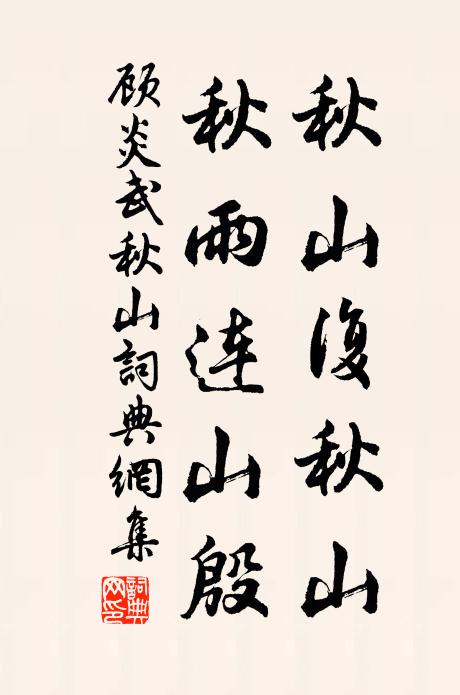 秋山復秋山
秋雨連山殷
顾炎武秋山詞典網集
詞典网印